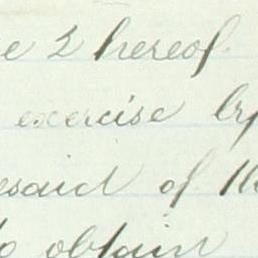 e 2 hereof
exercise by
esaid of th
to obtain